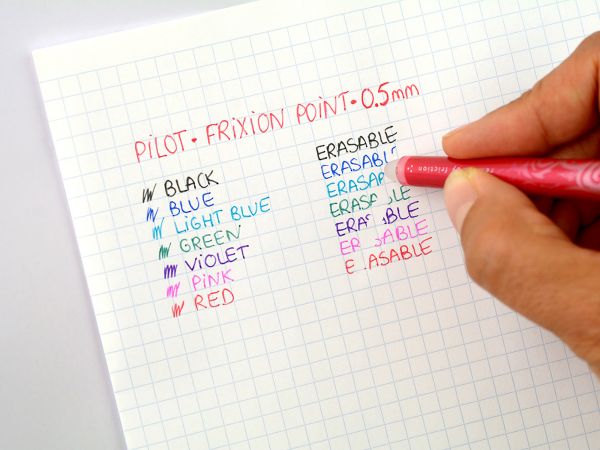 PiLOT • FRiXiON POiNT • 0.5mm
BLACK
BLUE
LiGHT BLUE
GREEN
ViOLET
PiNK
RED
ERASABLE
ERASABL
ERASA
ERAS LE
ERA ABLE
ER ABLE
E ASABLE
friction